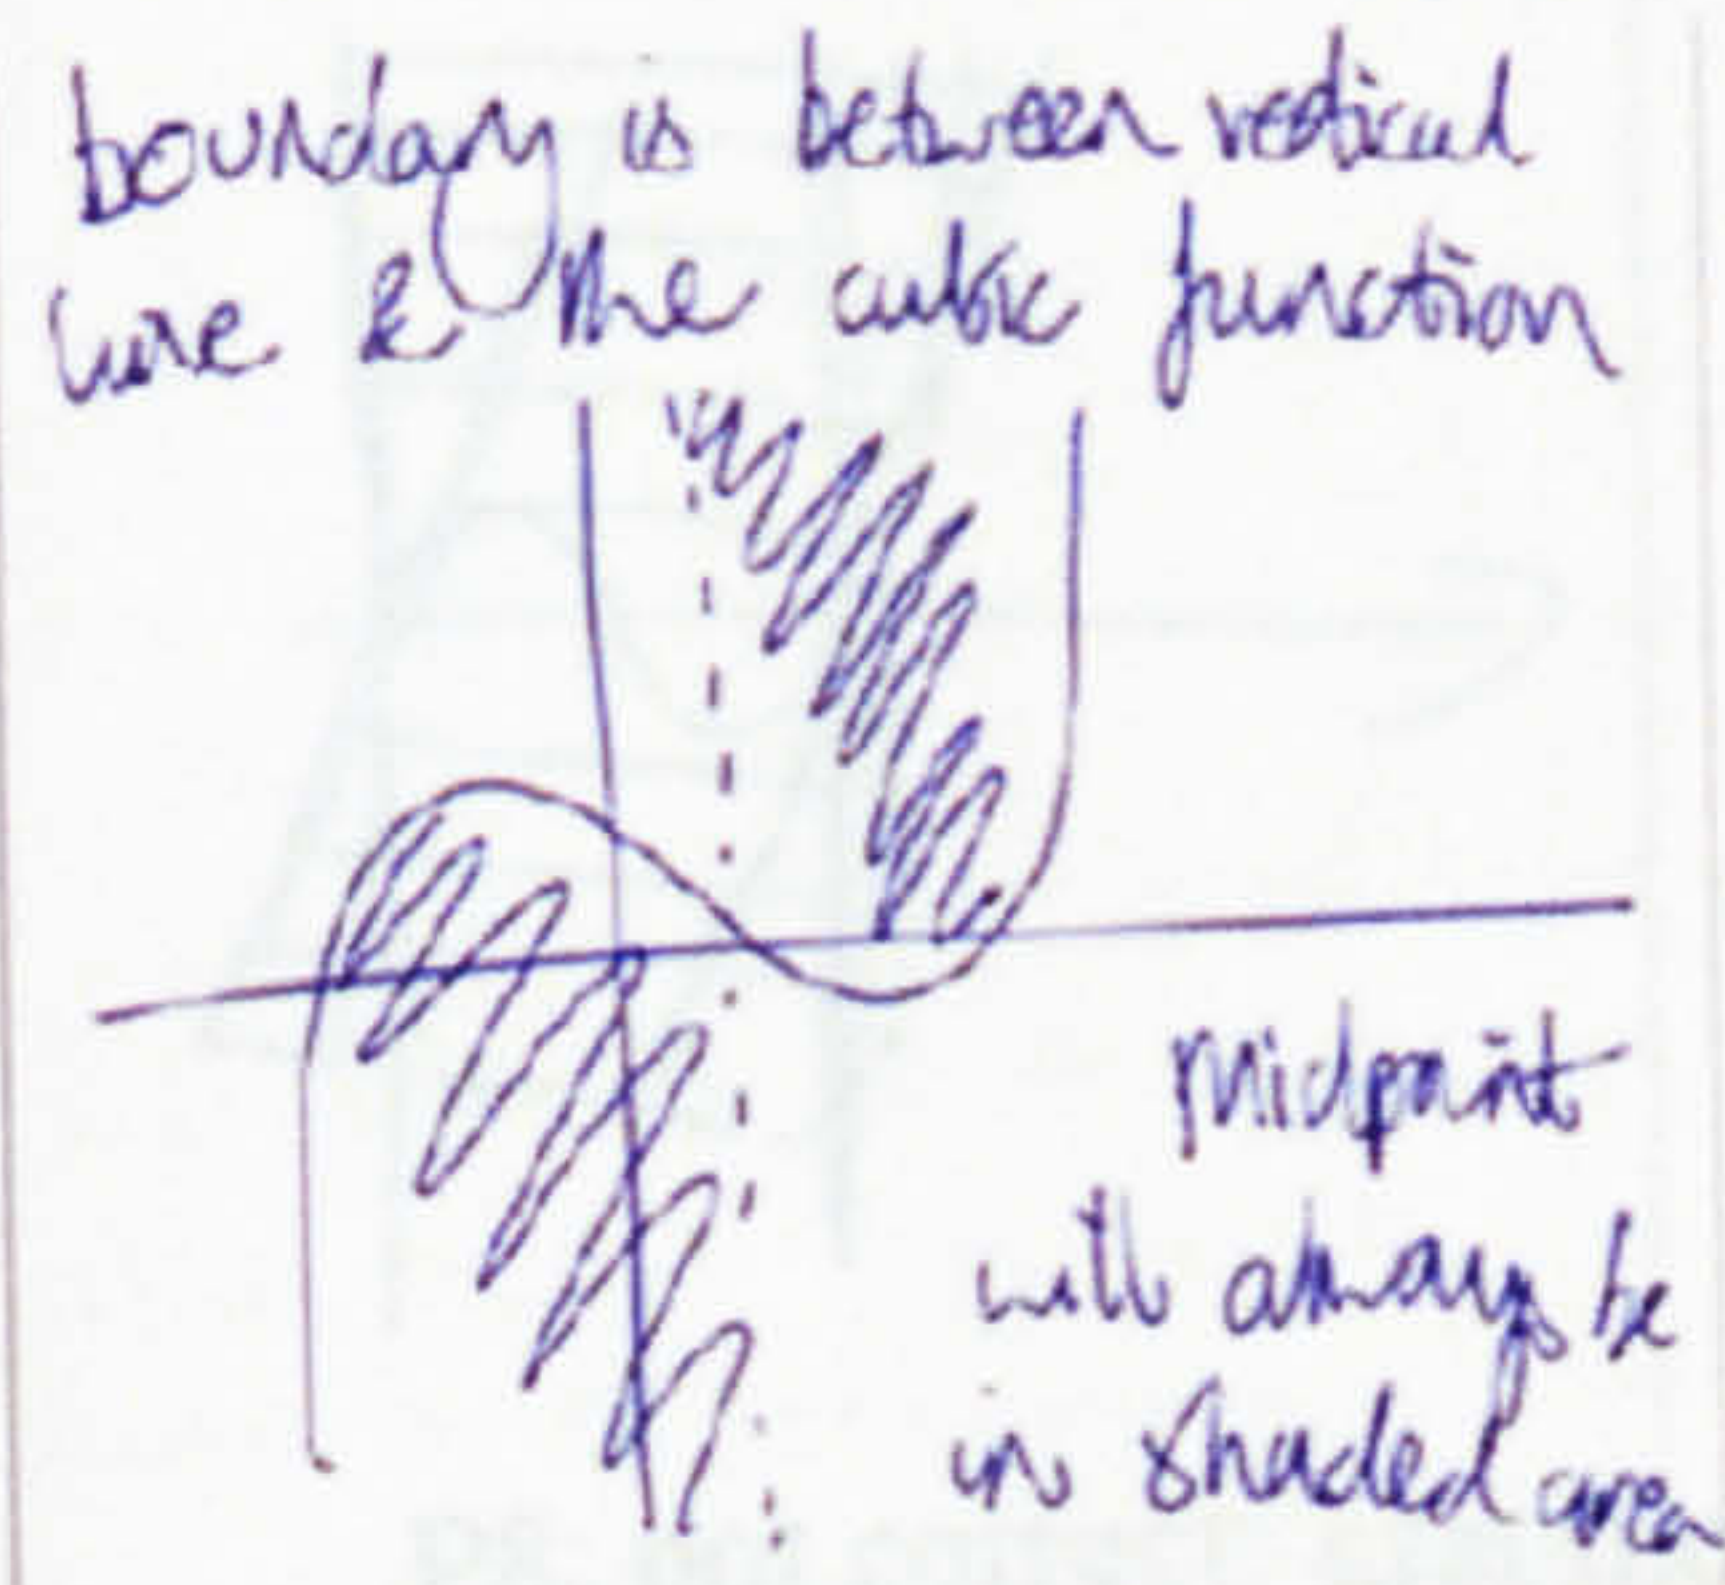 boundary is between vertical
line & the cubic function
Midpoint
will always be
in shaded area